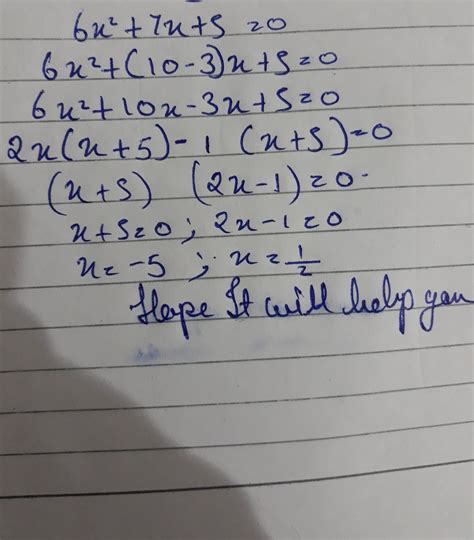 6x² + 7x + 5 = 0
6x² + (10 - 3)x + 5 = 0
6x² + 10x - 3x + 5 = 0
2x(x + 5) - 1 (x + 5) = 0
(x + 5) (2x - 1) = 0
x + 5 = 0 ; 2x - 1 = 0
x = -5 ; x = 1/2
Hope It will help you